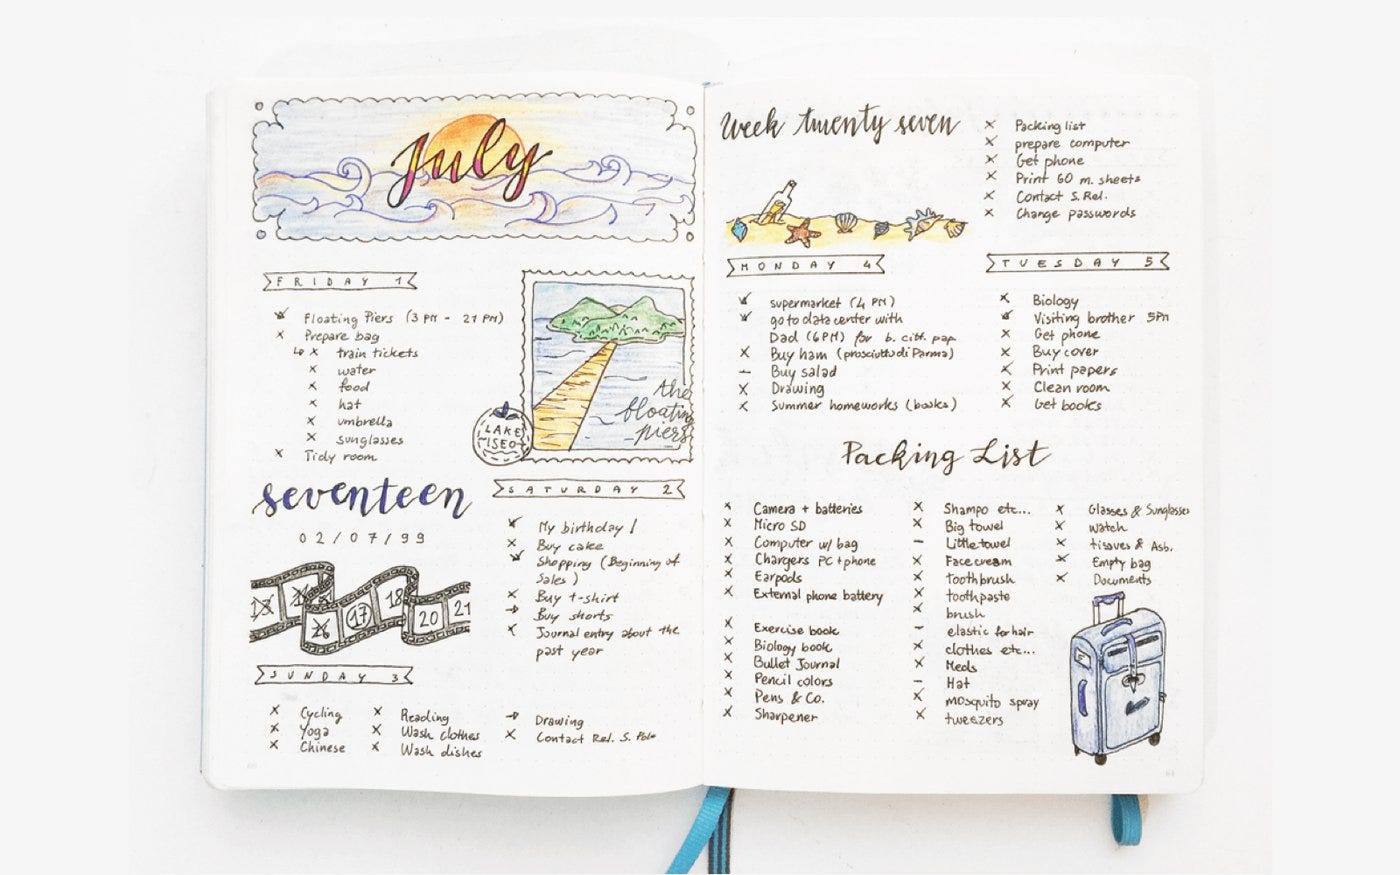 July
FRIDAY 1
Floating Piers (3 PM - 21 PM)
Prepare bag
train tickets
water
food
hat
umbrella
sunglasses
Tidy room
the
floating
piers
LAKE
ISEO
seventeen
02/07/99
15 16 17 18 20 21
SATURDAY 2
My birthday!
Buy cake
Shopping (Beginning of
Sales)
Buy t-shirt
Buy shorts
Journal entry about the
past year
SUNDAY 3
Cycling
Yoga
Chinese
Reading
Wash clothes
Wash dishes
Drawing
Contact Rel. S.
Week twenty seven
Packing list
prepare computer
Get phone
Print 60 m. sheets
Contact S. Rel.
Change passwords
MONDAY 4
supermarket (4 PM)
go to data center with
Dad (6PM) for b. citt. pap.
Buy ham (prosciutto di Parma)
Buy salad
Drawing
Summer homeworks (books)
TUESDAY 5
Biology
Visiting brother 5PM
Get phone
Buy cover
Print papers
Clean room
Get books
Packing List
Camera + batteries
Micro SD
Computer w/ bag
Chargers PC + phone
Earpods
External phone battery
Exercise book
Biology book
Bullet Journal
Pencil colors
Pens & Co.
Sharpener
Shampo etc...
Big towel
Little towel
Face cream
toothbrush
toothpaste
brush
elastic for hair
clothes etc...
Meds
Hat
mosquito spray
tweezers
Glasses & Sunglasses
watch
tissues & Asb.
Empty bag
Documents